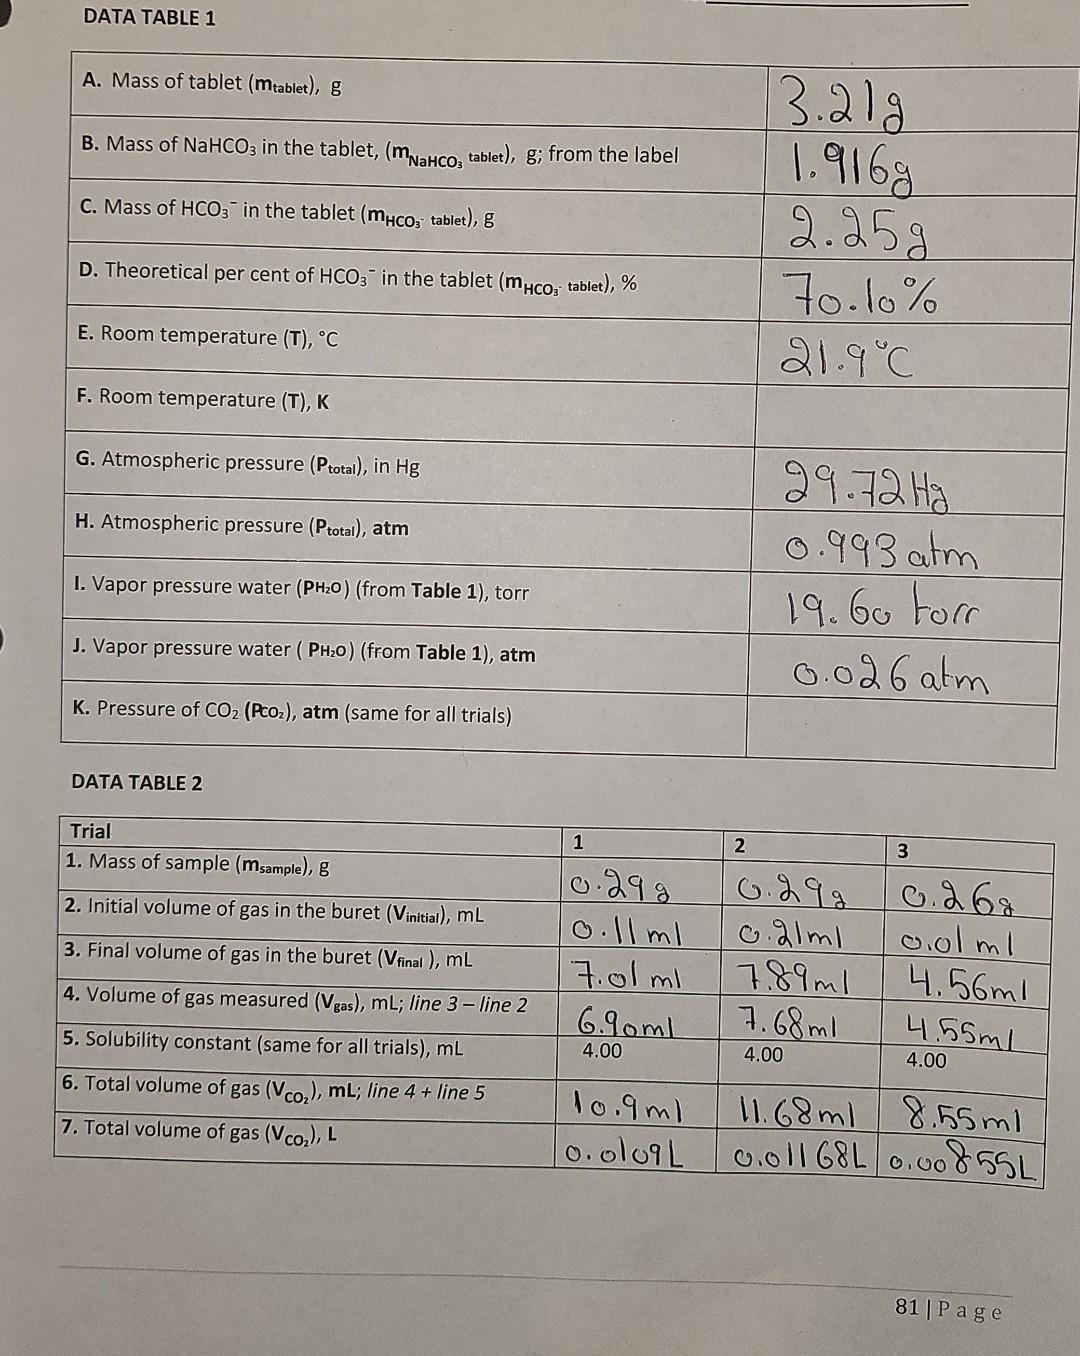 DATA TABLE 1
A. Mass of tablet (mtablet), g 3.21g
B. Mass of NaHCO₃ in the tablet, (mNaHCO₃ tablet), g; from the label 1.916g
C. Mass of HCO₃⁻ in the tablet (mHCO₃⁻ tablet), g 2.25g
D. Theoretical per cent of HCO₃⁻ in the tablet (mHCO₃⁻ tablet), % 70.10%
E. Room temperature (T), °C 21.9°C
F. Room temperature (T), K
G. Atmospheric pressure (Ptotal), in Hg 29.72 Hg
H. Atmospheric pressure (Ptotal), atm 0.993 atm
I. Vapor pressure water (PH₂O) (from Table 1), torr 19.60 torr
J. Vapor pressure water ( PH₂O) (from Table 1), atm 0.026 atm
K. Pressure of CO₂ (PCO₂), atm (same for all trials)
DATA TABLE 2
Trial 1 2 3
1. Mass of sample (msample), g 0.29g 0.29g 0.26g
2. Initial volume of gas in the buret (Vinitial), mL 0.11 ml 0.21ml 0.01 ml
3. Final volume of gas in the buret (Vfinal ), mL 7.01 ml 7.89ml 4.56ml
4. Volume of gas measured (Vgas), mL; line 3 – line 2 6.90ml 7.68ml 4.55ml
5. Solubility constant (same for all trials), mL 4.00 4.00 4.00
6. Total volume of gas (VCO₂), mL; line 4 + line 5 10.9ml 11.68ml 8.55ml
7. Total volume of gas (VCO₂), L 0.0109L 0.01168L 0.00855L
81 | Page